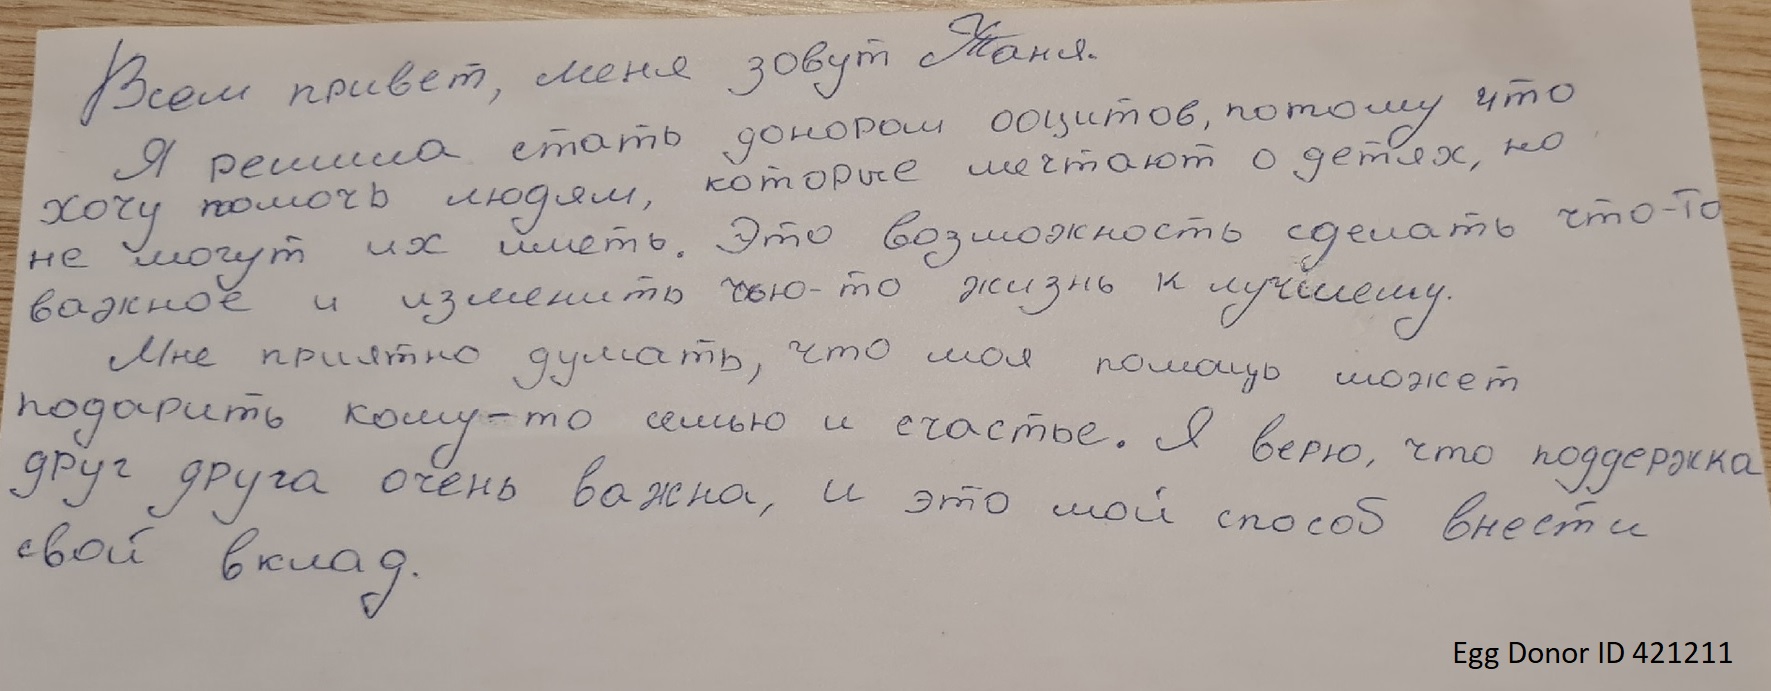 Всем привет, меня зовут Таня.
Я решила стать донором ооцитов, потому что
хочу помочь людям, которые мечтают о детях, но
не могут их иметь. Это возможность сделать что-то
важное и изменить чью-то жизнь к лучшему.
Мне приятно думать, что моя помощь может
подарить кому-то семью и счастье. Я верю, что поддержка
друг друга очень важна, и это мой способ внести
свой вклад.
Egg Donor ID 421211